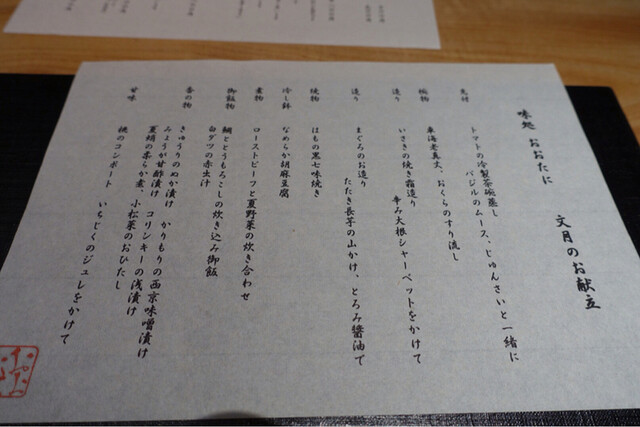 味処 おおたに
文月のお献立
先付
トマトの冷製茶碗蒸し
バジルのムース、じゅんさいと一緒に
椀物
車海老真丈、おくらのすり流し
造り
いさきの焼き霜造り
辛み大根シャーベットをかけて
造り
まぐろのお造り
たたき長芋の山かけ、とろみ醤油で
焼物
はもの黒七味焼き
冷し鉢
なめらか胡麻豆腐
煮物
ローストビーフと夏野菜の炊き合わせ
御飯物
鯛ととうもろこしの炊き込み御飯
白ダツの赤出汁
香の物
きゅうりのぬか漬け かりもりの西京味噌漬け
みょうが甘酢漬け コリンキーの浅漬け
夏蛸の柔らか煮、小松菜のおひたし
甘味
桃のコンポート いちじくのジュレをかけて